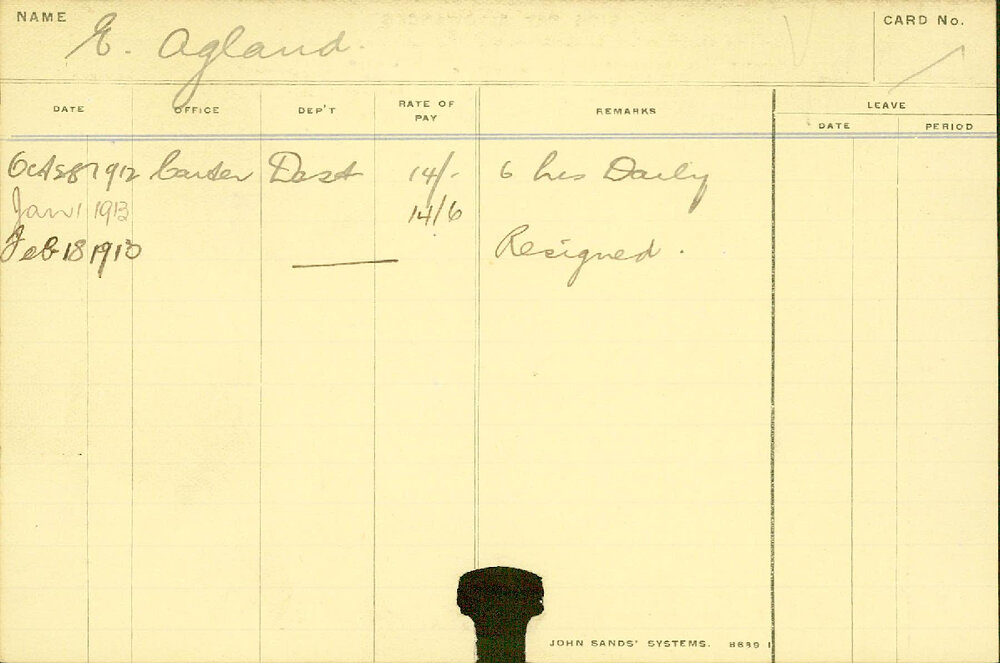 NAME E. Agland. CARD No.
DATE OFFICE DEP'T RATE OF PAY REMARKS LEAVE
DATE PERIOD
Oct 28 1912 Carter Dest 14/- 6 hrs Daily
Jan 1 1913 14/6
Feb 18 1913 Resigned.
JOHN SANDS' SYSTEMS.